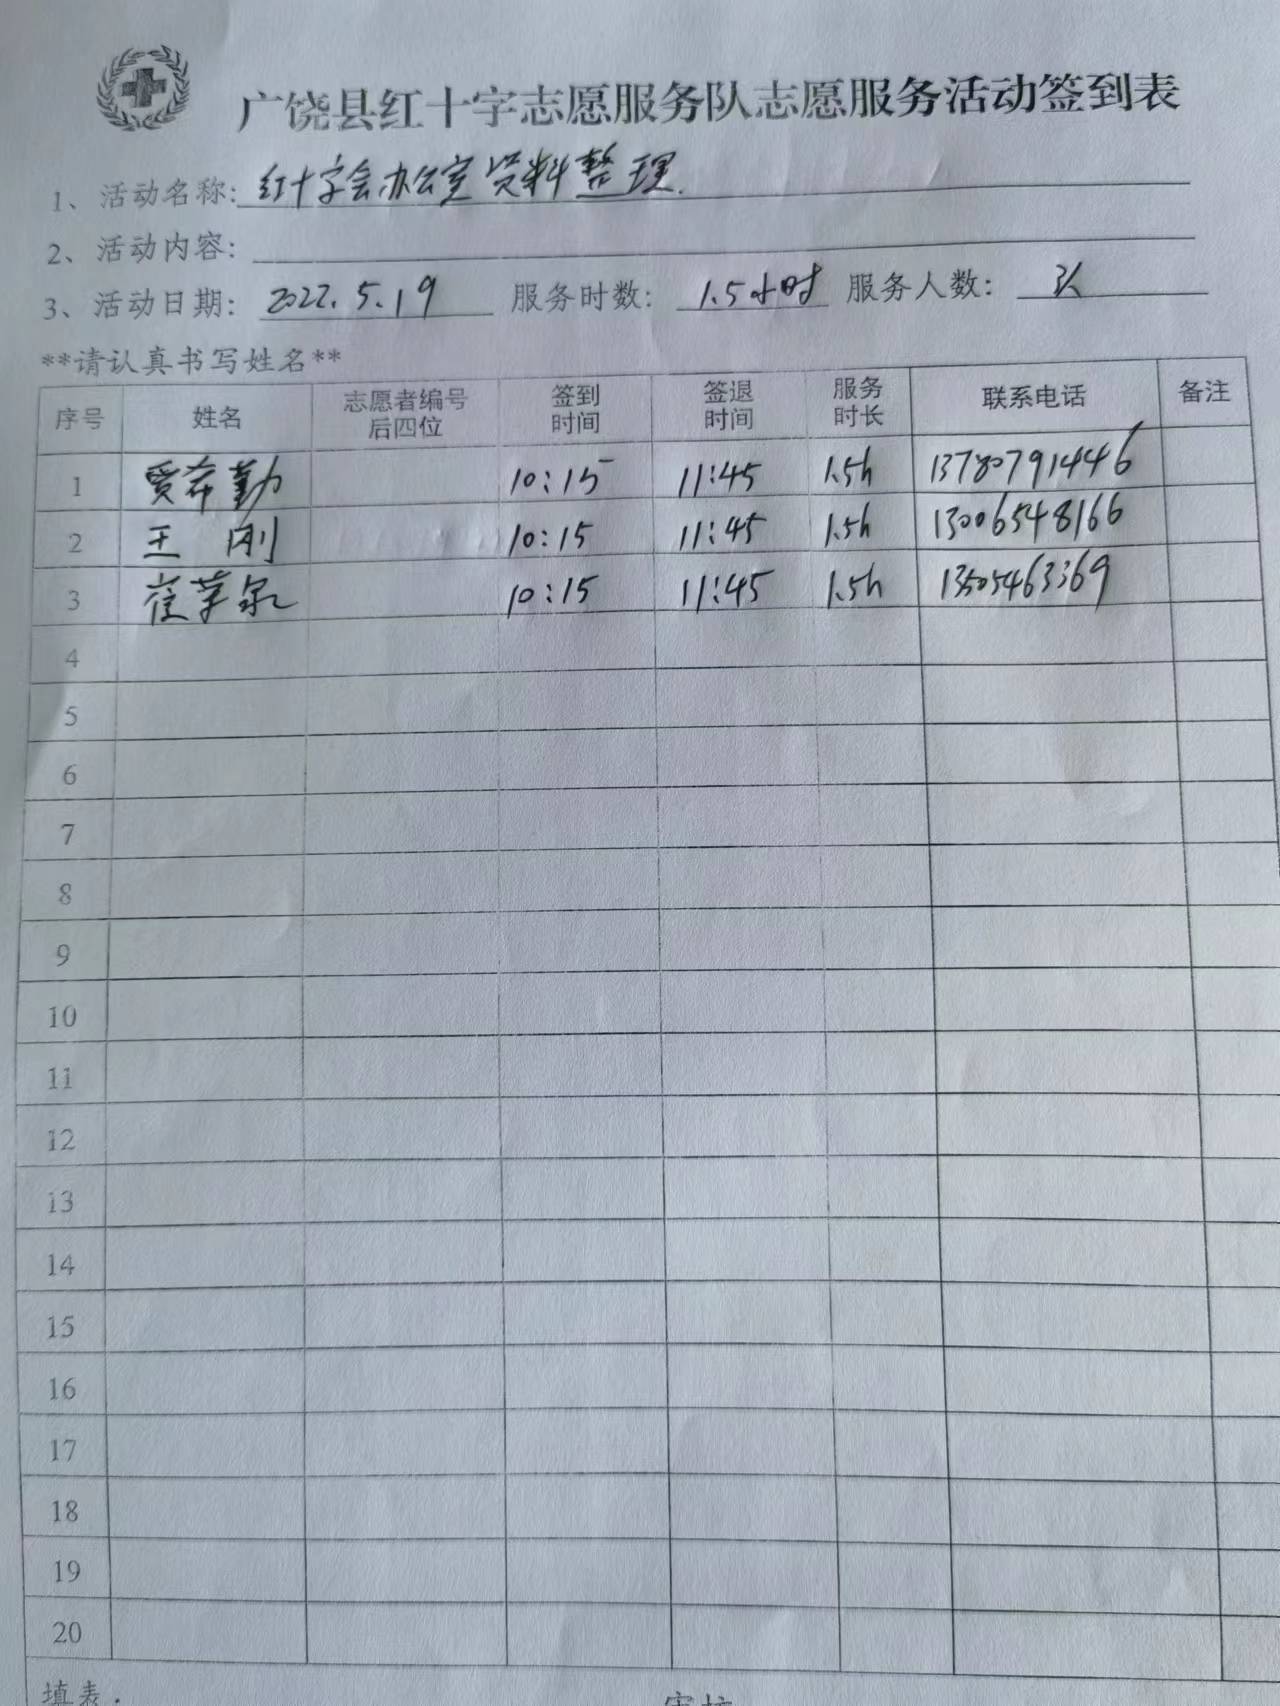 广饶县红十字志愿服务队志愿服务活动签到表
1、活动名称：红十字会办公室资料整理.
2、活动内容：
3、活动日期：2022.5.19 服务时数：1.5小时 服务人数：3人
**请认真书写姓名**
序号 姓名 志愿者编号后四位 签到时间 签退时间 服务时长 联系电话 备注
1 贾希勤 10:15 11:45 1.5h 13780791446
2 王刚 10:15 11:45 1.5h 13006548166
3 崔 10:15 11:45 1.5h 13505463369
4
5
6
7
8
9
10
11
12
13
14
15
16
17
18
19
20
填表：